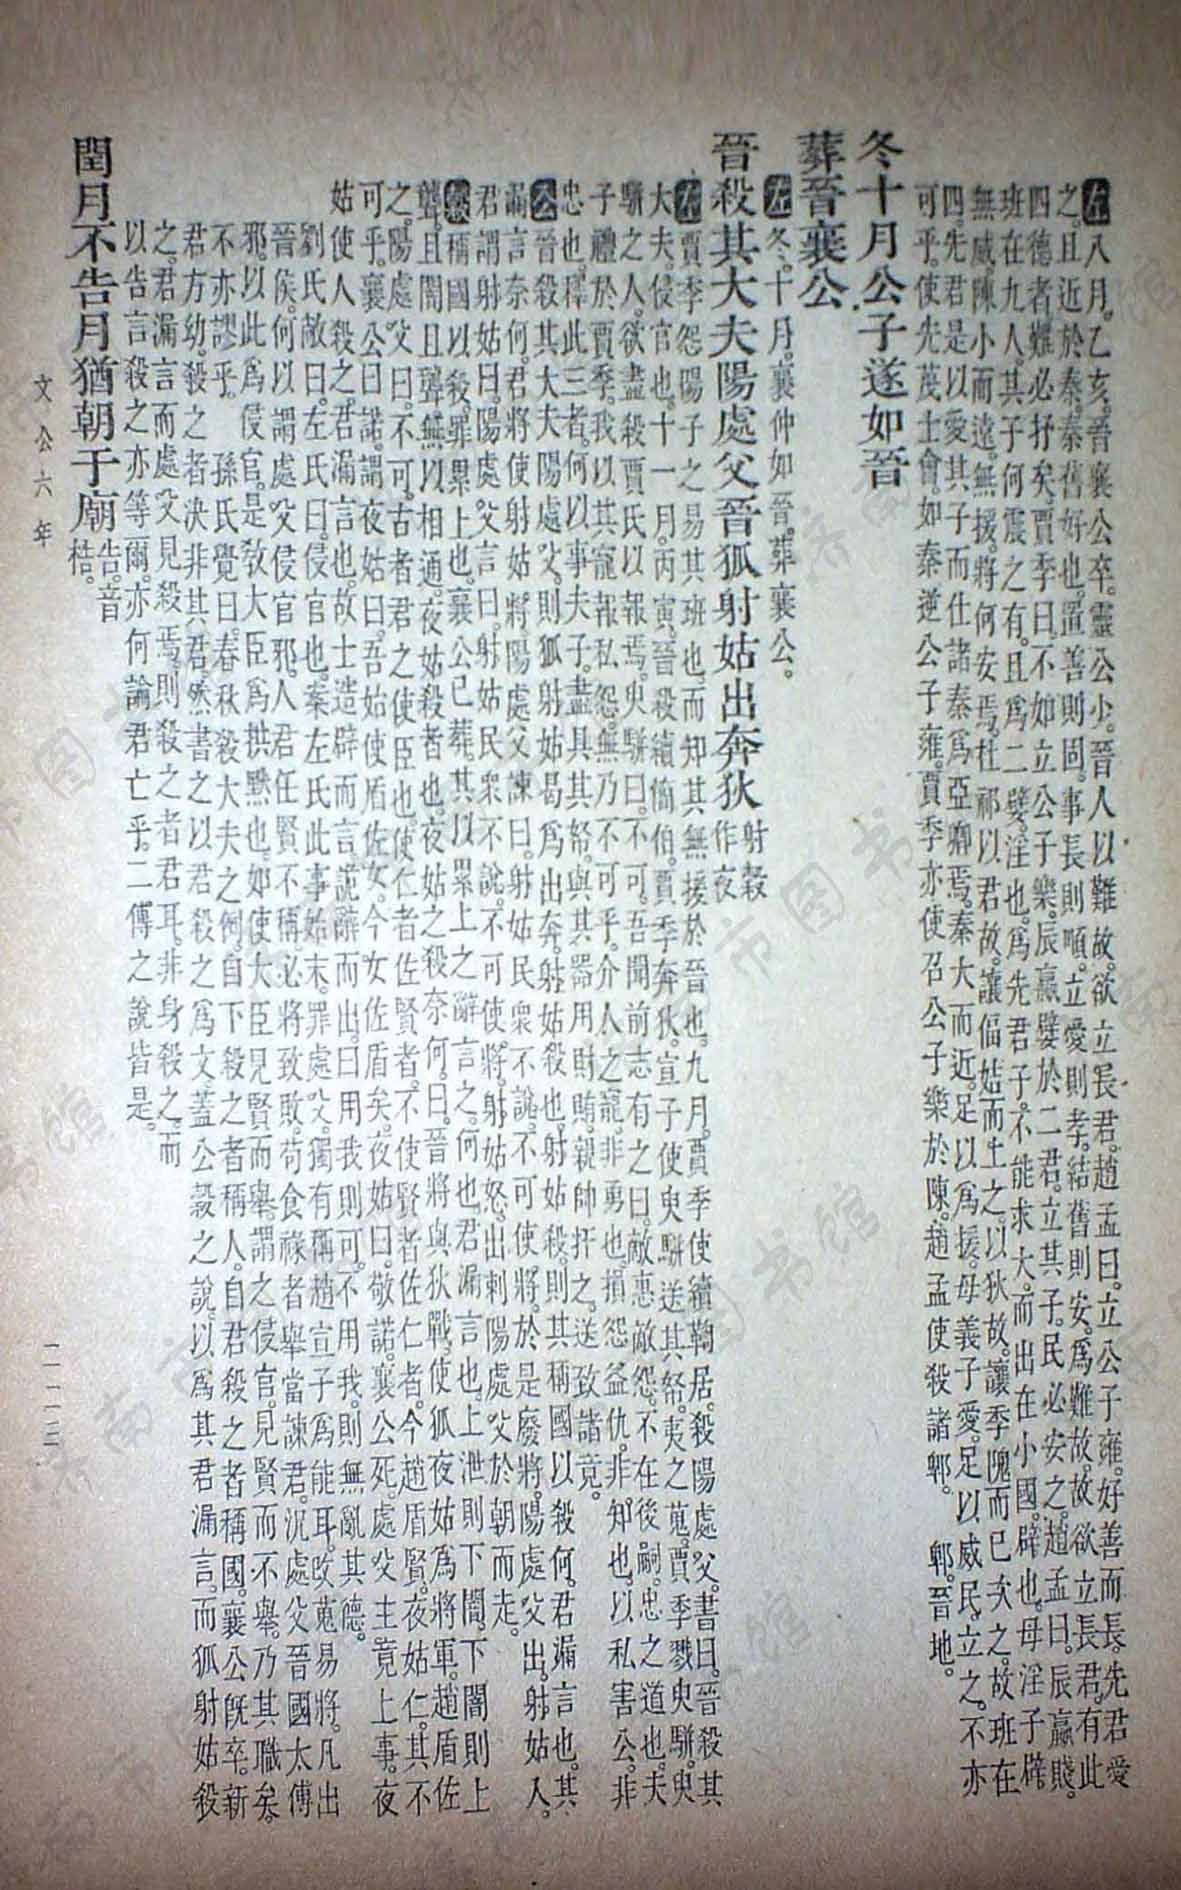 左八月。乙亥。晉襄公卒。靈公少。晉人以難故。欲立長君。趙孟曰。立公子雍。好善而長。先君愛
之。且近於秦。秦舊好也。置善則固。事長則順。立愛則孝。結舊則安。爲難故。故欲立長君。有此
四德者。難必抒矣。賈季曰。不如立公子樂。辰嬴嬖於二君。立其子。民必安之。趙孟曰。辰嬴賤。
班在九人。其子何震之有。且爲二嬖。淫也。爲先君子。不能求大。而出在小國。辟也。母淫子辟。
無威。陳小而遠。無援。將何安焉。杜祁以君故。讓偪姞而上之。以狄故。讓季隗而己次之。故班在
四。先君是以愛其子。而仕諸秦。爲亞卿焉。秦大而近。足以爲援。母義子愛。足以威民。立之。不亦
可乎。使先蔑士會。如秦逆公子雍。賈季亦使召公子樂於陳。趙孟使殺諸郫。 郫。晉地。
冬十月公子遂如晉
葬晉襄公
左冬。十月。襄仲如晉。葬襄公。
晉殺其大夫陽處父晉狐射姑出奔狄 射穀作夜
左賈季怨陽子之易其班也。而知其無援於晉也。九月。賈季使續鞫居。殺陽處父。書曰。晉殺其
大夫。侵官也。十一月。丙寅。晉殺續簡伯。賈季奔狄。宣子使臾騈送其帑。夷之蒐。賈季戮臾騈。臾
騈之人。欲盡殺賈氏以報焉。臾騈曰。不可。吾聞前志有之曰。敵惠敵怨。不在後嗣。忠之道也。夫
子禮於賈季。我以其寵報私怨。無乃不可乎。介人之寵。非勇也。損怨益仇。非知也。以私害公。非
忠也。釋此三者。何以事夫子。盡具其帑。與其器用財賄。親帥扞之。送致諸竟。
公晉殺其大夫陽處父。則狐射姑曷爲出奔。射姑殺也。射姑殺。則其稱國以殺何。君漏言也。其
漏言奈何。君將使射姑將。陽處父諫曰。射姑民衆不說。不可使將。於是廢將。陽處父出。射姑入。
君謂射姑曰。陽處父言曰。射姑民衆不說。不可使將。射姑怒。出刺陽處父於朝而走。
穀稱國以殺。罪累上也。襄公已葬。其以累上之辭言之。何也。君漏言也。上泄則下闇。下闇則上
聾。且闇且聾。無以相通。夜姑殺者也。夜姑之殺奈何。曰。晉將與狄戰。使狐夜姑爲將軍。趙盾佐
之。陽處父曰。不可。古者君之使臣也。使仁者佐賢者。不使賢者佐仁者。今趙盾賢。夜姑仁。其不
可乎。襄公曰。諾。謂夜姑曰。吾始使盾佐女。今女佐盾矣。夜姑曰。敬諾。襄公死。處父主竟上事。夜
姑使人殺之。君漏言也。故士造辟而言。詭辭而出。曰用我則可。不用我。則無亂其德。
劉氏敞曰。左氏曰。侵官也。案左氏此事始末。罪處父。獨有稱趙宣子爲能耳。改蒐易將。凡出
晉侯。何以謂處父侵官邪。人君任賢不稱。必將致敗。苟食祿者。舉當諫君。況處父晉國太傅
邪。以此爲侵官。是敎大臣爲拱默也。如使大臣見賢而舉。謂之侵官。見賢而不舉。乃其職矣。
不亦謬乎。 孫氏覺曰。春秋殺大夫之例。自下殺之者稱人。自君殺之者稱國。襄公旣卒。新
君方幼。殺之者決非其君。然書之以君殺之爲文。蓋公穀之說。以爲其君漏言。而狐射姑殺
之。君漏言而處父見殺焉。則殺之者君耳。非身殺之。而
以告言殺之。亦等爾。亦何論君亡乎。二傳之說皆是。
閏月不告月猶朝于廟 告。音梏。
文公六年
一一二三